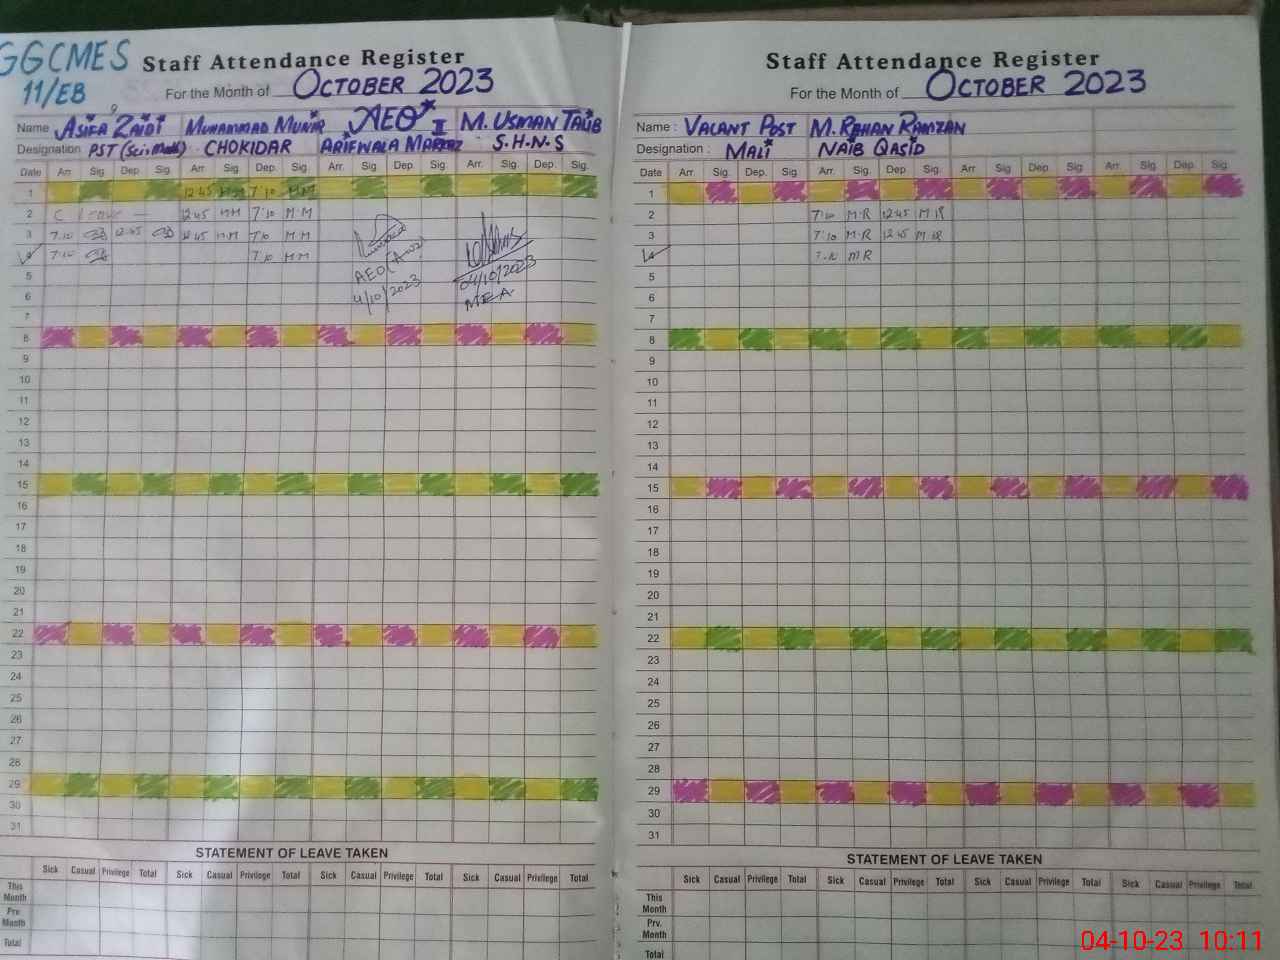 GGCMES
11/EB
Staff Attendance Register
For the Month of OCTOBER 2023
Name ASIFA ZAIDI MUHAMMAD MUNIR AEO II M. USMAN TALIB
Designation PST (Sci-Math) CHOKIDAR ARIFWALA MARKAZ S.H.N.S
Date Arr. Sig. Dep. Sig. Arr. Sig. Dep. Sig. Arr. Sig. Dep. Sig. Arr. Sig. Dep. Sig.
1 12:45 MM 7:10 MM
2 C Leave — 12:45 MM 7:10 M.M
3 7:10 12:45 12:45 M.M 7:10 MM
4 7:10 7:10 MM
5
6
7
8
9
10
11
12
13
14
15
16
17
18
19
20
21
22
23
24
25
26
27
28
29
30
31
AEO
4/10/2023
04/10/2023
MEA
STATEMENT OF LEAVE TAKEN
Sick Casual Privilege Total Sick Casual Privilege Total Sick Casual Privilege Total Sick Casual Privilege Total
This Month
Prv. Month
Total
Staff Attendance Register
For the Month of OCTOBER 2023
Name : VACANT POST M. REHAN RAMZAN
Designation : MALI NAIB QASID
Date Arr. Sig. Dep. Sig. Arr. Sig. Dep. Sig. Arr. Sig. Dep. Sig. Arr. Sig. Dep. Sig.
1
2 7:10 M.R 12:45 M.R
3 7:10 M.R 12:45 M.R
4 7:10 MR
5
6
7
8
9
10
11
12
13
14
15
16
17
18
19
20
21
22
23
24
25
26
27
28
29
30
31
STATEMENT OF LEAVE TAKEN
Sick Casual Privilege Total Sick Casual Privilege Total Sick Casual Privilege Total Sick Casual Privilege Total
This Month
Prv. Month
Total
04-10-23 10:11